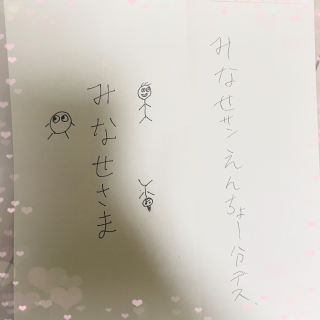 みなせサン えんちょー分デス
みなせさま